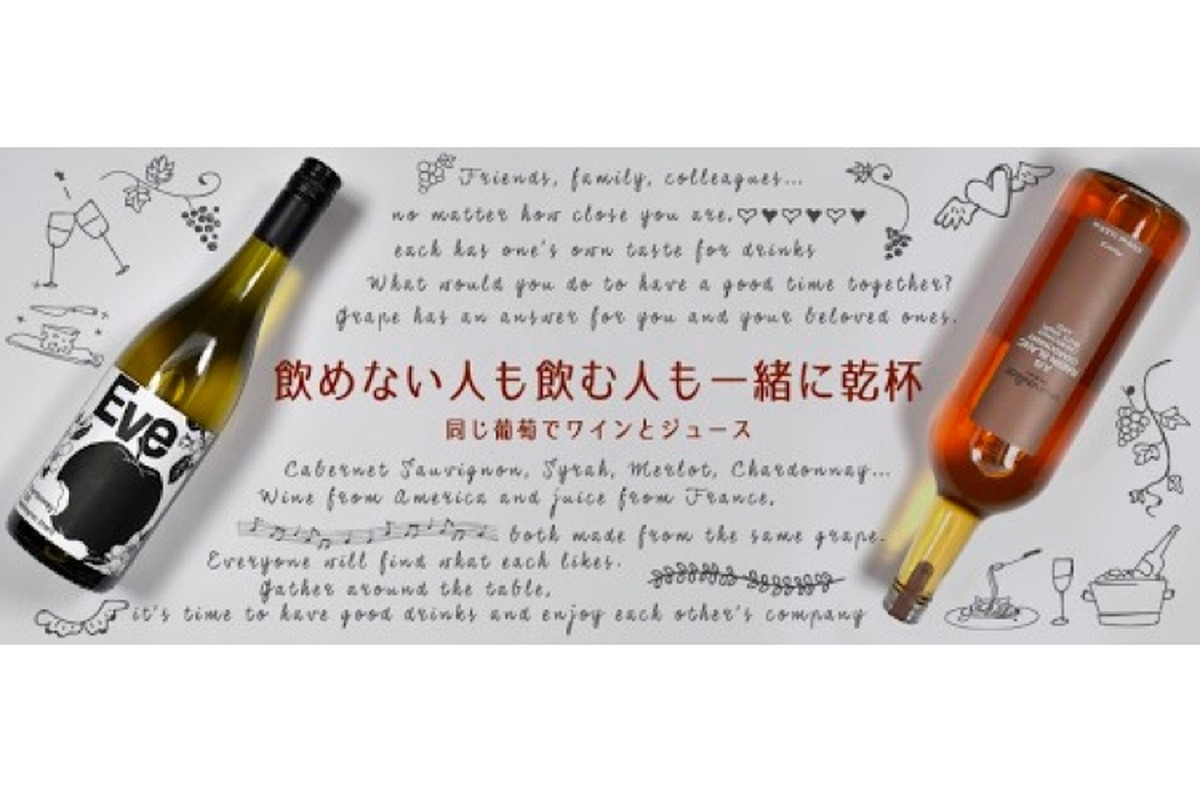 Friends, family, colleagues...
no matter how close you are,♡♥♡♥♡♥♥
each has one's own taste for drinks
What would you do to have a good time together?
Grape has an answer for you and your beloved ones.
飲めない人も飲む人も一緒に乾杯
同じ葡萄でワインとジュース
Cabernet Sauvignon, Syrah, Merlot, Chardonnay...
Wine from America and juice from France,
both made from the same grape.
Everyone will find what each likes.
Gather around the table,
it's time to have good drinks and enjoy each other's company
Eve